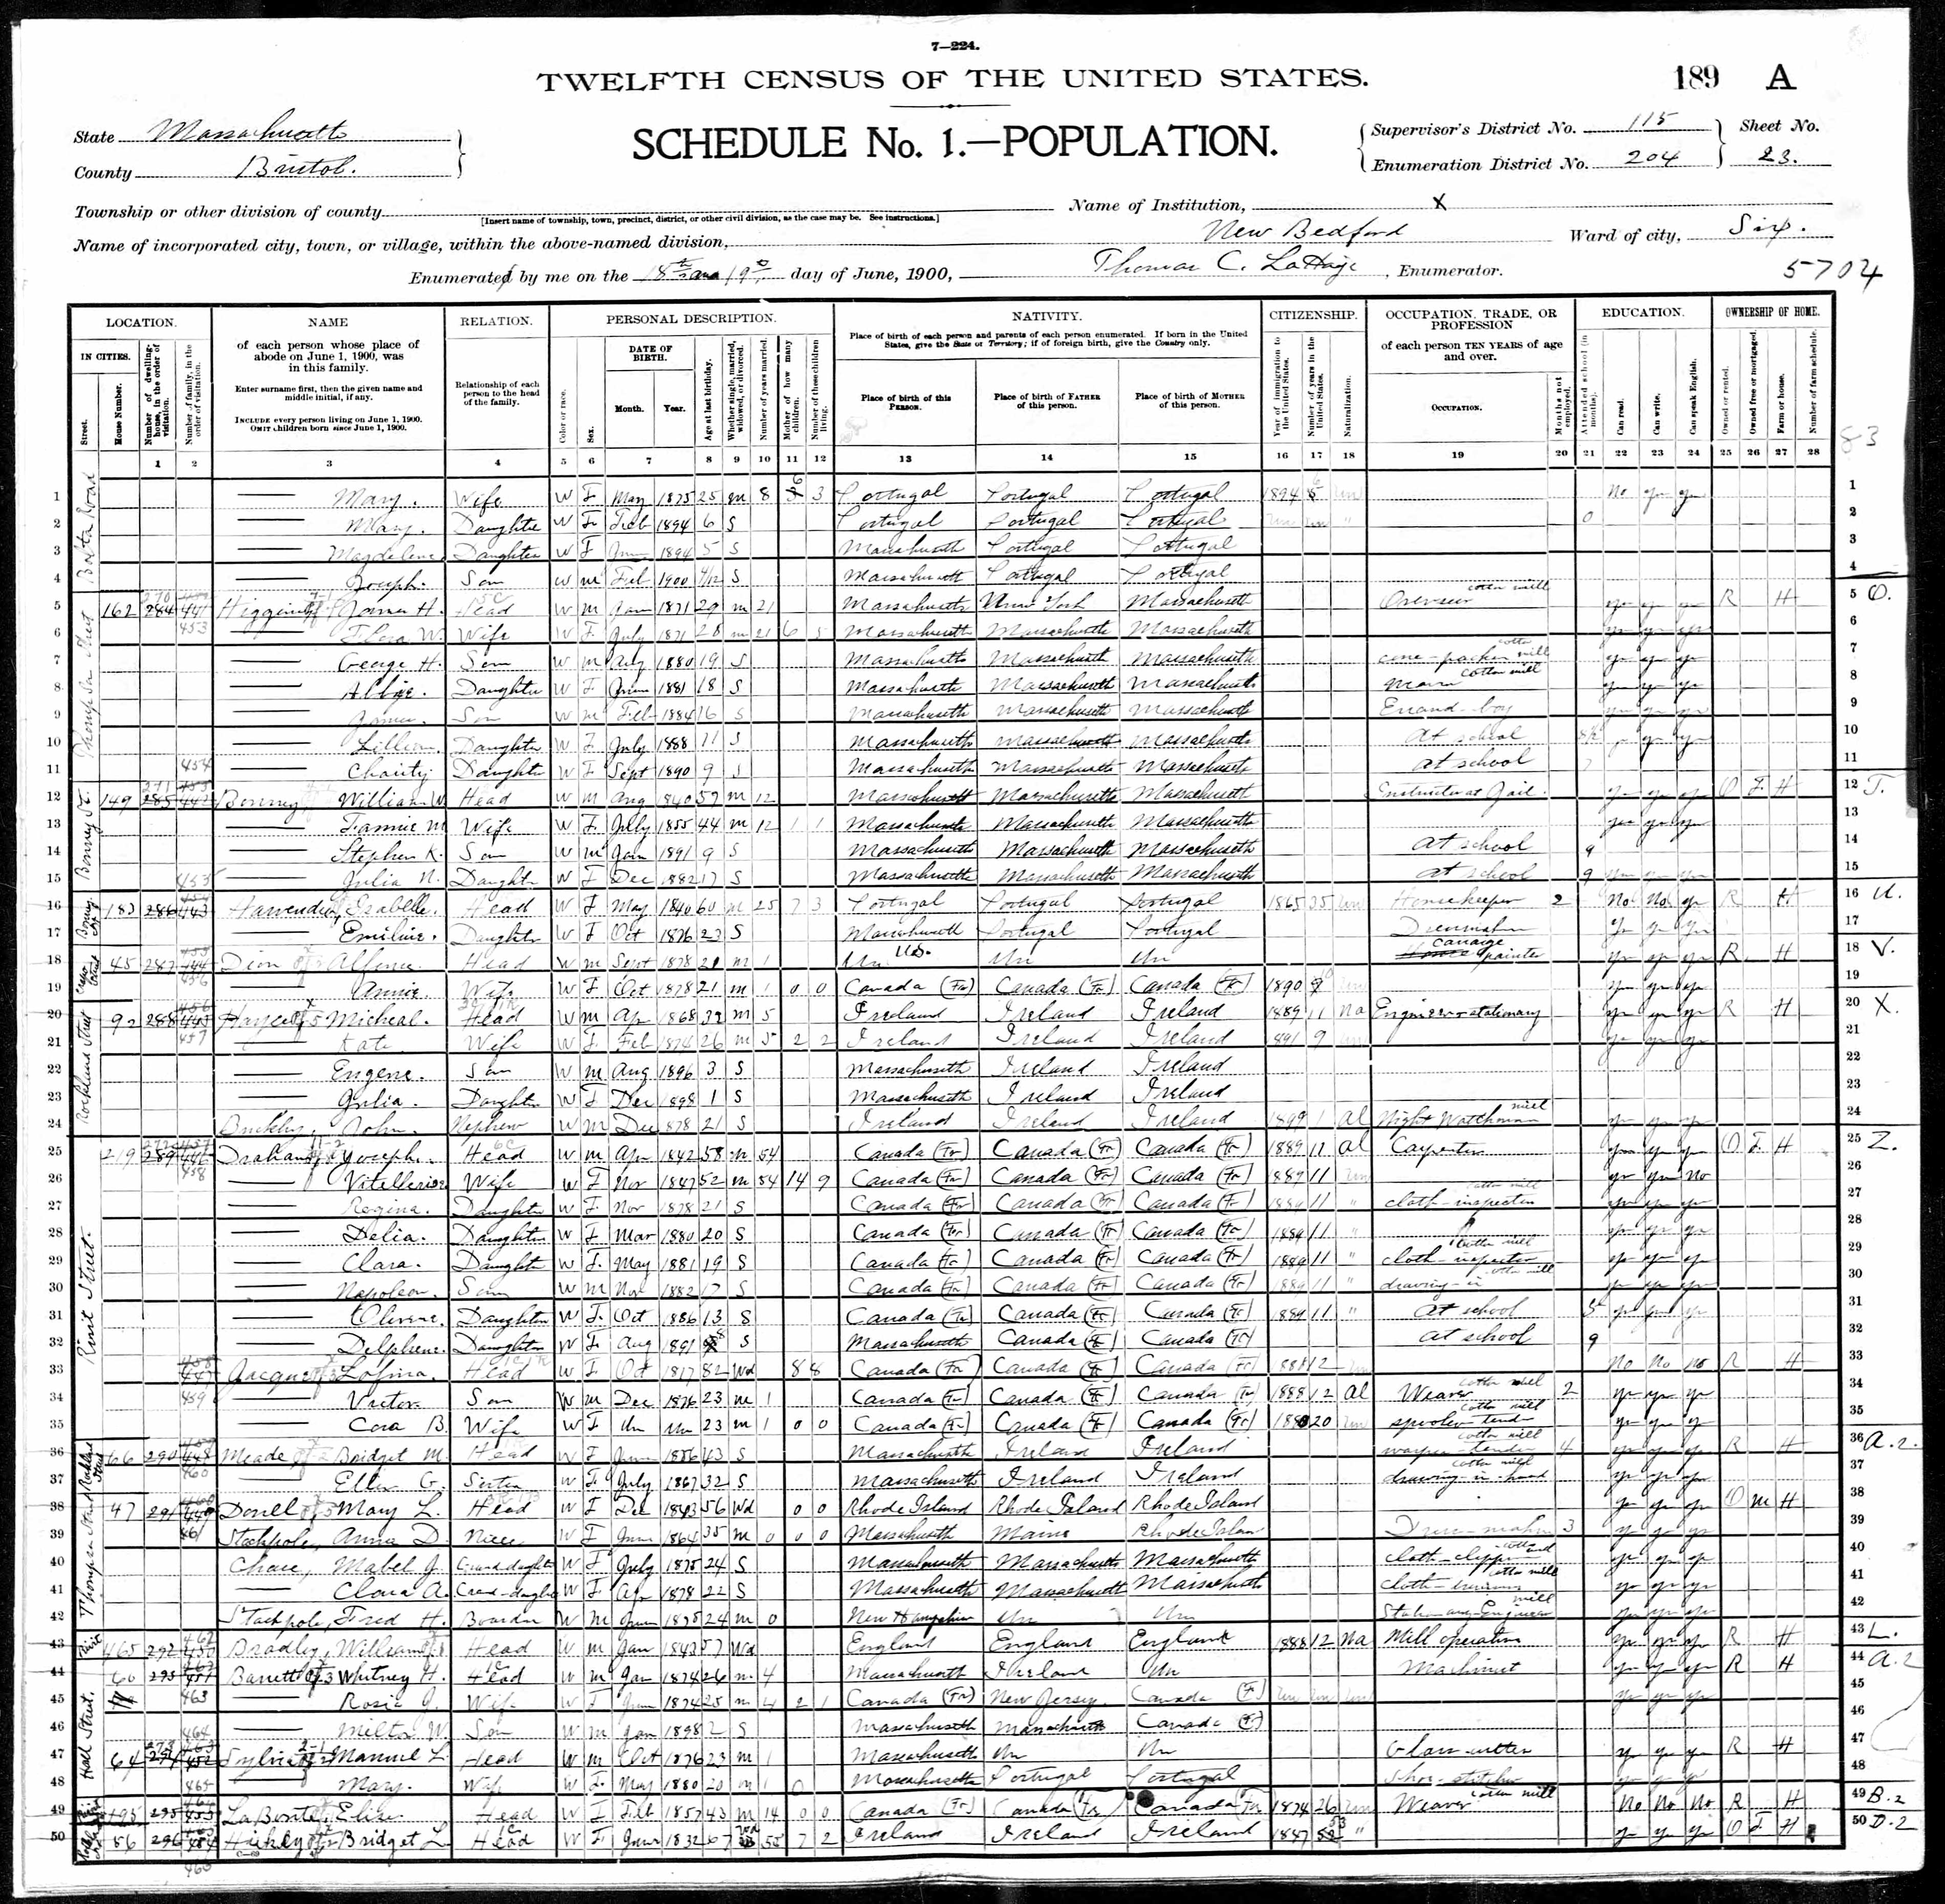 7—224.
TWELFTH CENSUS OF THE UNITED STATES.
189 A
State Massachusetts
County Bristol.
SCHEDULE No. 1.—POPULATION.
Supervisor's District No. 115
Enumeration District No. 204
Sheet No. 23.
Township or other division of county
[Insert name of township, town, precinct, district, or other civil division, as the case may be. See instructions.]
Name of Institution, X
Name of incorporated city, town, or village, within the above-named division, New Bedford
Ward of city, Six.
Enumerated by me on the 18th and 19th day of June, 1900, Thomas C. LaHaye, Enumerator.
5704
LOCATION. NAME RELATION. PERSONAL DESCRIPTION. NATIVITY. CITIZENSHIP. OCCUPATION, TRADE, OR PROFESSION EDUCATION. OWNERSHIP OF HOME.
IN CITIES. Street. House Number. Number of dwelling-house, in the order of visitation. Number of family, in the order of visitation.
of each person whose place of abode on June 1, 1900, was in this family.
Enter surname first, then the given name and middle initial, if any.
INCLUDE every person living on June 1, 1900. OMIT children born since June 1, 1900.
Relationship of each person to the head of the family.
Color or race. Sex. DATE OF BIRTH. Month. Year. Age at last birthday. Whether single, married, widowed, or divorced. Number of years married. Mother of how many children. Number of these children living.
Place of birth of each person and parents of each person enumerated. If born in the United States, give the State or Territory; if of foreign birth, give the Country only.
Place of birth of this PERSON. Place of birth of FATHER of this person. Place of birth of MOTHER of this person.
Year of immigration to the United States. Number of years in the United States. Naturalization.
of each person TEN YEARS of age and over.
OCCUPATION. Months not employed.
Attended school (in months). Can read. Can write. Can speak English.
Owned or rented. Owned free or mortgaged. Farm or house. Number of farm schedule.
1 2 3 4 5 6 7 8 9 10 11 12 13 14 15 16 17 18 19 20 21 22 23 24 25 26 27 28
83
1 Mary. Wife W F May 1875 25 m 8 3 Portugal Portugal Portugal 1894 No yes yes 1
2 Mary. Daughter W F Feb 1894 6 S Portugal Portugal Portugal 0 2
3 Magdelene Daughter W F June 1894 5 S Massachusetts Portugal Portugal 3
4 Joseph. Son W m Feb 1900 S Massachusetts Portugal Portugal 4
Thompson Street
5 162 284 Higgins James H. Head W m Jan 1871 29 m 21 Massachusetts New York Massachusetts Overseer cotton mill yes yes yes R H 5 O.
6 Flora W. Wife W F July 1871 28 m 21 6 5 Massachusetts Massachusetts Massachusetts yes yes yes 6
7 George H. Son W m 1880 19 S Massachusetts Massachusetts Massachusetts cone-packer cotton mill yes yes yes 7
8 Daughter W F June 1881 18 S Massachusetts Massachusetts Massachusetts cotton mill yes yes yes 8
9 James. Son W m Feb 1884 16 S Massachusetts Massachusetts Massachusetts Errand-boy yes yes yes 9
10 Lillian. Daughter W F July 1888 11 S Massachusetts Massachusetts Massachusetts At school yes yes yes 10
11 Charity Daughter W F Sept 1890 9 S Massachusetts Massachusetts Massachusetts at school 11
Bonney St.
12 149 285 Bonney William W Head W m Aug 1840 59 m 12 Massachusetts Massachusetts Massachusetts Instructor at Jail. yes yes yes O F H 12 T.
13 Fannie M Wife W F July 1855 44 m 12 1 1 Massachusetts Massachusetts Massachusetts yes yes yes 13
14 Stephen K. Son W m Jan 1891 9 S Massachusetts Massachusetts Massachusetts at school 9 14
15 Julia N. Daughter W F Dec 1882 17 S Massachusetts Massachusetts Massachusetts at school 9 yes yes yes 15
16 183 286 Isabelle. Head W F May 1840 60 m 25 7 3 Portugal Portugal Portugal 1865 35 Housekeeper 2 No No yes R H 16 U.
17 Emiline. Daughter W F Oct 1876 23 S Massachusetts Portugal Portugal Dressmaker yes yes yes 17
18 45 287 Dion Alfonce. Head W m Sept 1878 21 m 1 Un U.S. Un Un carriage painter yes yes yes R H 18 V.
19 Annie. Wife W F Oct 1878 21 m 1 0 0 Canada (Fr) Canada (Fr) Canada (Fr) 1890 9 yes yes yes 19
Rockland Street
20 92 288 Hayes Micheal. Head W m Ap 1868 32 m 5 Ireland Ireland Ireland 1889 11 na Engineer-stationary yes yes yes R H 20 X.
21 Kate Wife W F Feb 1874 26 m 5 2 2 Ireland Ireland Ireland 1891 9 yes yes yes 21
22 Eugene. Son W m Aug 1896 3 S Massachusetts Ireland Ireland 22
23 Julia. Daughter W F Dec 1898 1 S Massachusetts Ireland Ireland 23
24 Buckley, John. Nephew W m Dec 1878 21 S Ireland Ireland Ireland 1899 1 al Night Watchman mill yes yes yes 24
Rivit Street.
25 219 289 Joseph. Head W m Apr 1842 58 m 34 Canada (Fr) Canada (Fr) Canada (Fr) 1889 11 al Carpenter yes yes yes O F H 25 Z.
26 Vitellerior Wife W F Nov 1847 52 m 34 14 9 Canada (Fr) Canada (Fr) Canada (Fr) 1889 11 yes yes No 26
27 Regina. Daughter W F Nov 1878 21 S Canada (Fr) Canada (Fr) Canada (Fr) 1889 11 cloth-inspector cotton mill yes yes yes 27
28 Delia. Daughter W F Mar 1880 20 S Canada (Fr) Canada (Fr) Canada (Fr) 1889 11 " yes yes yes 28
29 Clara. Daughter W F. May 1881 19 S Canada (Fr) Canada (Fr) Canada (Fr) 1889 11 " cloth-inspector cotton mill yes yes yes 29
30 Napoleon. Son W m Nov 1882 17 S Canada (Fr) Canada (Fr) Canada (Fr) 1889 11 " drawing-in cotton mill yes yes yes 30
31 Olivene. Daughter W F. Oct 1886 13 S Canada (Fr) Canada (Fr) Canada (Fr) 1889 11 " at school 5 yes yes yes 31
32 Delphene. Daughter W F Aug 1891 8 S Massachusetts Canada (Fr) Canada (Fr) at school 9 32
33 Jacques Head W F Oct 1817 82 Wd 8 8 Canada (Fr) Canada (Fr) Canada (Fr) 1888 12 No No No R H 33
34 Victor. Son W m Dec 1876 23 m 1 Canada (Fr) Canada (Fr) Canada (Fr) 1888 12 al Weaver cotton mill 2 yes yes yes 34
35 Cora B. Wife W F Un Un 23 m 1 0 0 Canada (Fr) Canada (Fr) Canada (Fr) 1880 20 spooler-tender cotton mill yes yes yes 35
36 66 290 Meade Bridget M. Head W F June 1856 43 S Massachusetts Ireland Ireland cotton mill 4 yes yes yes R H 36 A.2.
37 Ellen G. Sister W F. July 1867 32 S Massachusetts Ireland Ireland drawing-in-hand cotton mill yes yes yes 37
Thompson Street
38 47 291 Mary L. Head W F Dec 1843 56 Wd 0 0 Rhode Island Rhode Island Rhode Island yes yes yes O m H 38
39 Stackpole, Anna D. Niece W F June 1864 35 m 0 0 0 Massachusetts Maine Rhode Island Dress-maker 3 yes yes yes 39
40 Chase, Mabel J. Grand daughter W F July 1875 24 S Massachusetts Massachusetts Massachusetts cotton mill yes yes yes 40
41 Clara A. Grand-daughter W F Apr 1878 22 S Massachusetts Massachusetts Massachusetts cotton mill yes yes yes 41
42 Stackpole, Fred H. Boarder W m June 1875 24 m 0 New Hampshire Un Un Stationary Engineer mill yes yes yes 42
43 465 292 Bradley, William Head W m Jan 1843 57 Wd England England England 1888 12 na Mill operative yes yes yes R H 43 L.
Hall Street.
44 60 293 Barrett Whitney H. Head W m Jan 1874 26 m 4 Massachusetts Ireland Un Machinist yes yes yes R H 44 A.2
45 Rosie J. Wife W F June 1874 25 m 4 2 1 Canada (Fr) New Jersey. Canada (Fr) Un Un Un yes yes yes 45
46 Milton W Son W m Jan 1898 2 S Massachusetts Massachusetts Canada (Fr) 46
47 64 Sylvia Manuel L. Head W m Oct 1876 23 m 1 Massachusetts Un Un Glass-cutter yes yes yes R H 47
48 Mary. Wife W F. May 1880 20 m 1 0 Massachusetts Portugal Portugal Shoe-stitcher 48
49 195 295 LaBonte, Elise. Head W F Feb 1857 43 m 14 0 0 Canada (Fr) Canada (Fr) Canada (Fr) 1874 26 Weaver cotton mill No No No R H 49 B.2
50 86 296 Bridget L. Head W F June 1832 67 Wd 7 2 Ireland Ireland Ireland 1847 53 " yes yes yes O F H 50 D.2